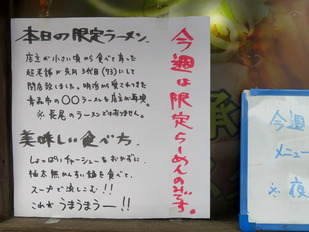 本日の限定ラーメン.
店主が小さい頃から食べて育った
超老舗が先月3代目(73)にして
閉店致しました。明治から愛されてきた
青森市の〇〇ラーメンを店主が再現。
※長尾のラーメンではありません。
美味しい食べ方.
しょっぱいチャーシューをおかずに、
極太無かんすい麺を食べて、
スープで流しこむ!!
これがうまうまうー!!
今週は限定らーめんのみです。
今週
メニュー
※夜